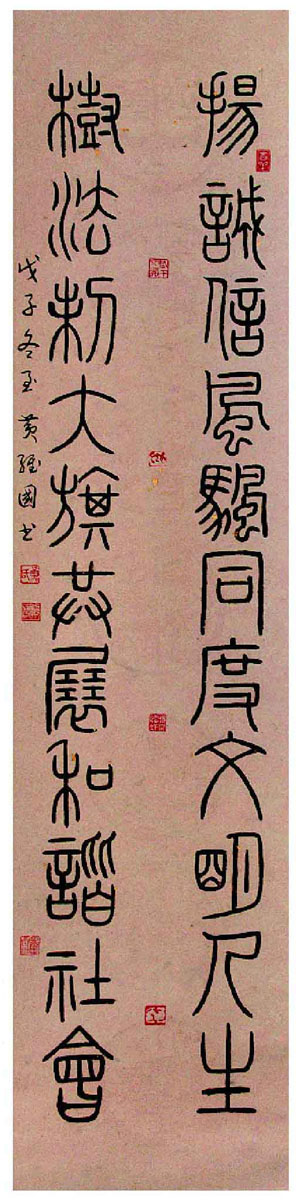 揚誠信風騷同度文明人生
樹法制大旗共展和諧社會
戊子冬至黃經國書